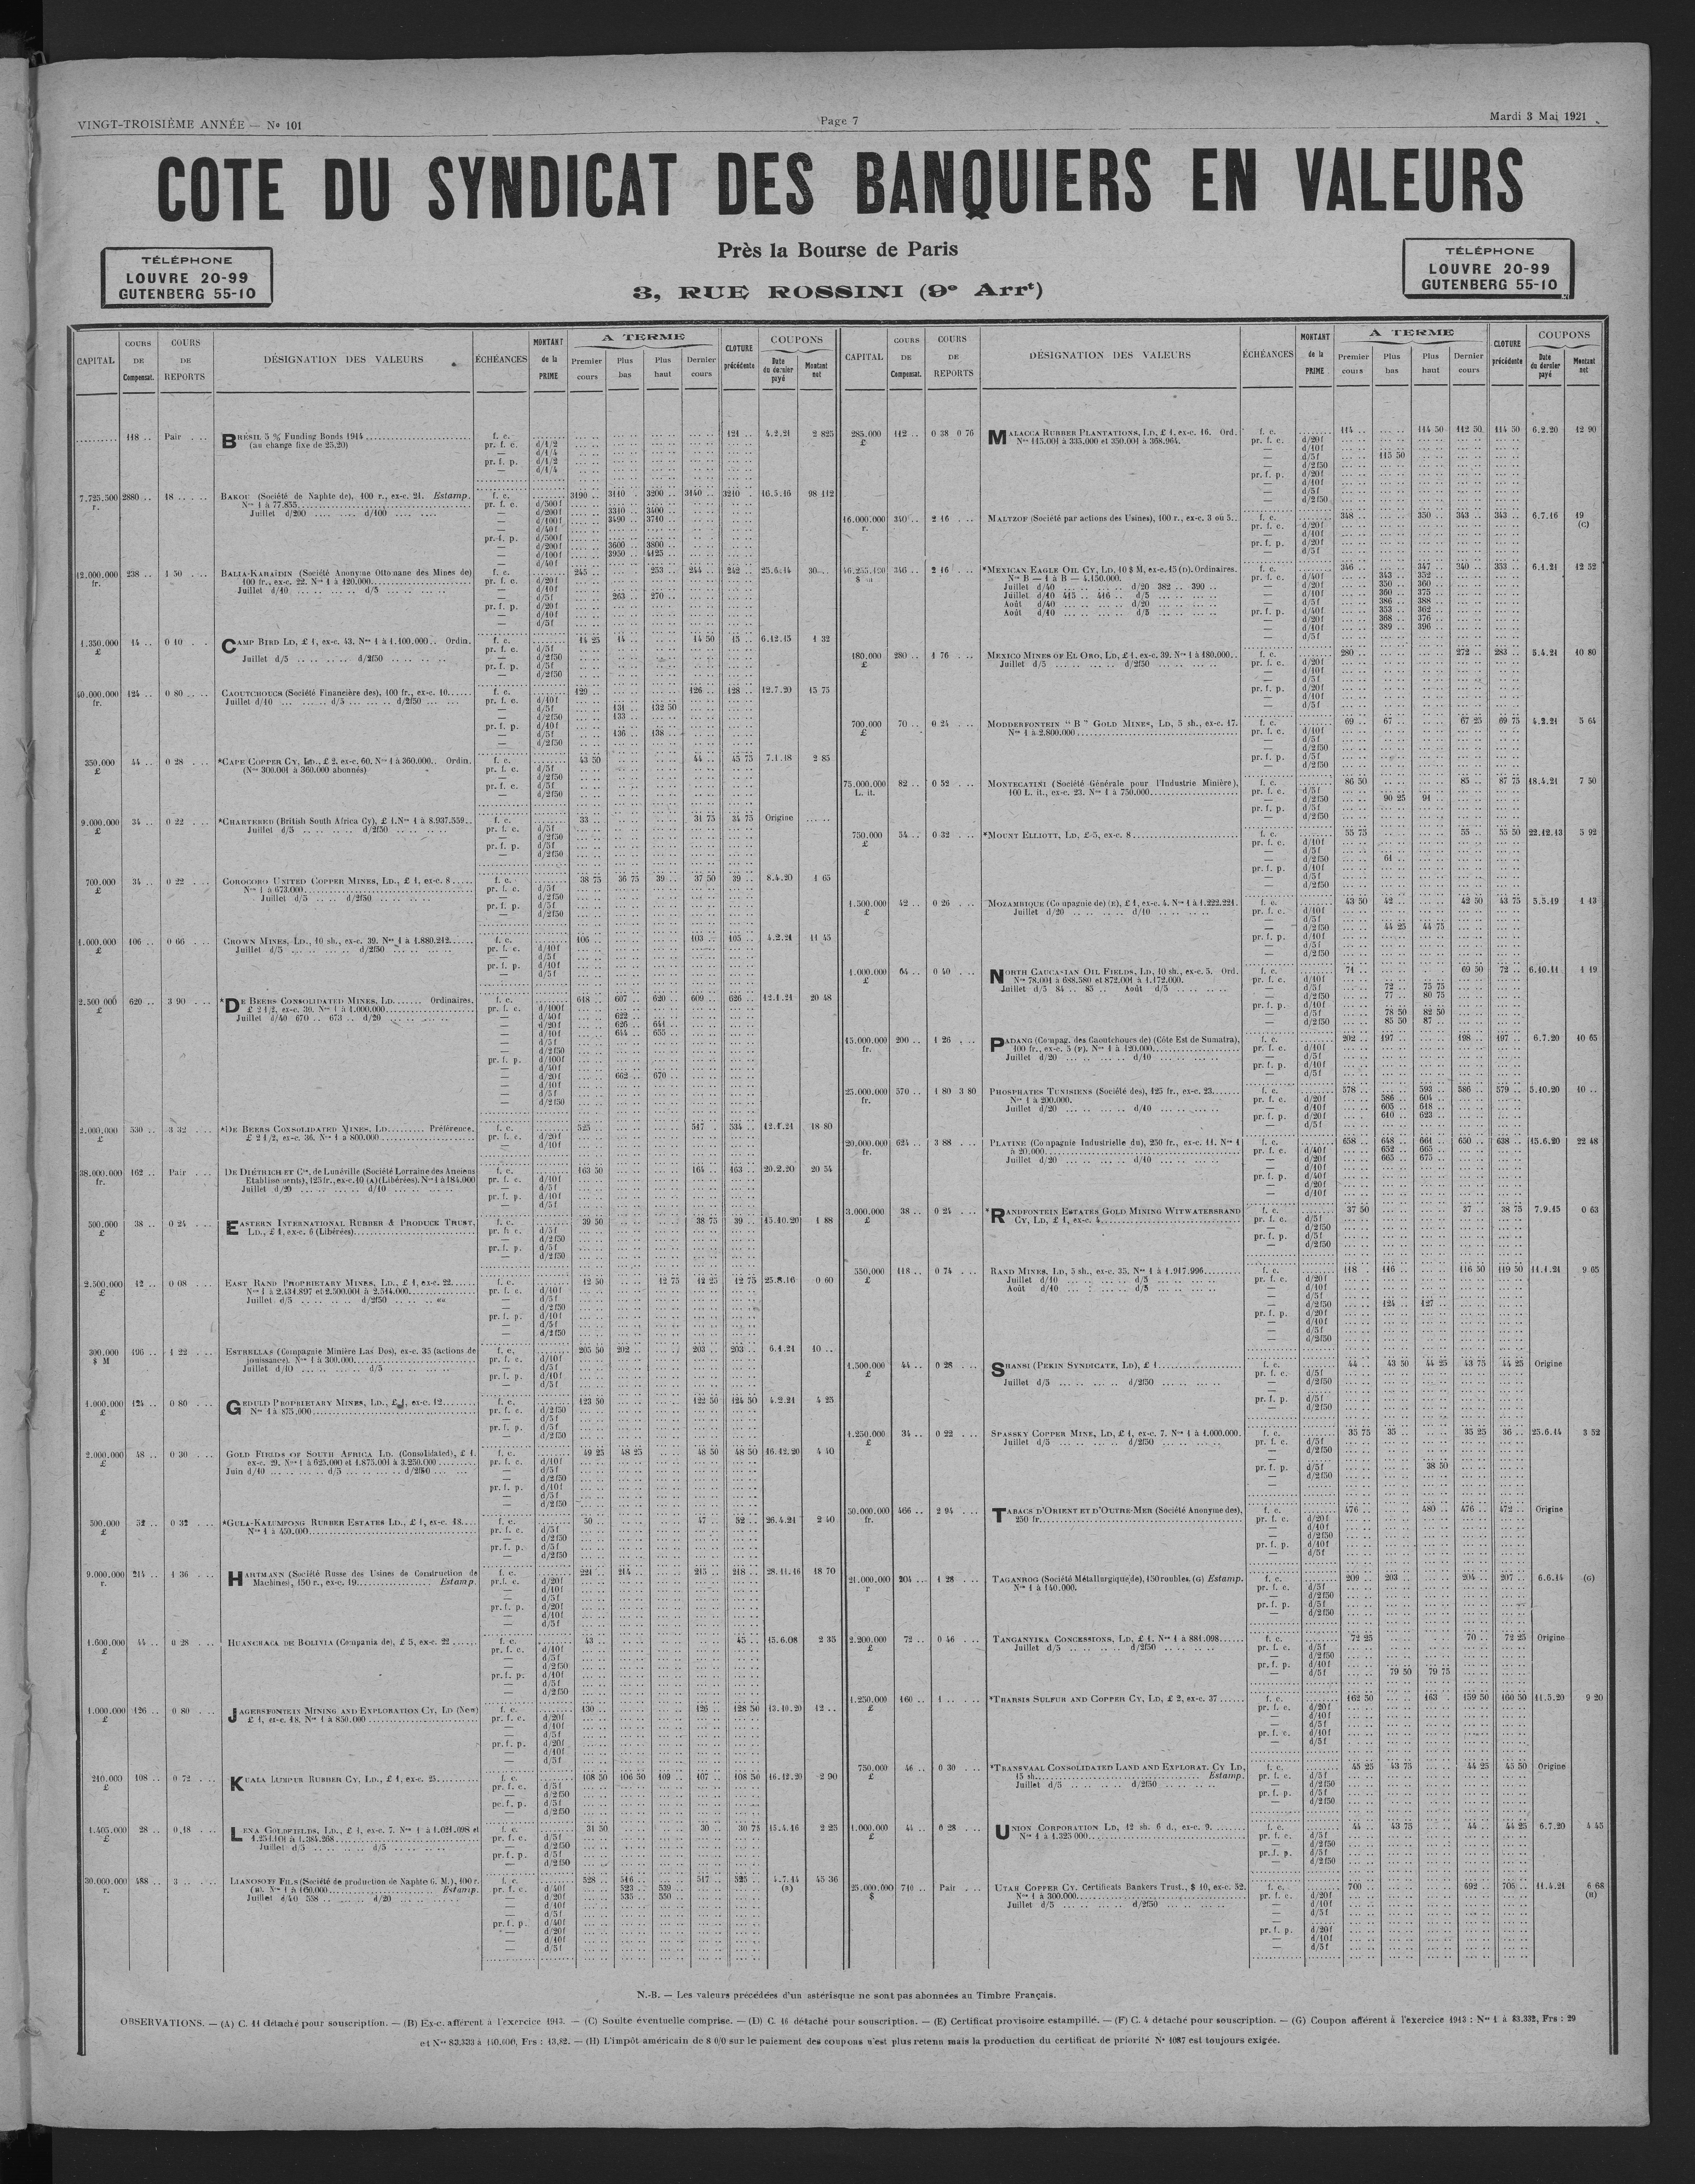 VINGT-TROISIÈME ANNÉE — N° 101
Page 7
Mardi 3 Mai 1921
COTE DU SYNDICAT DES BANQUIERS EN VALEURS
Près la Bourse de Paris
3, RUE ROSSINI (9e Arrt)
TÉLÉPHONE
LOUVRE 20-99
GUTENBERG 55-10
TÉLÉPHONE
LOUVRE 20-99
GUTENBERG 55-10
CAPITAL COURS DE Compensat. COURS DE REPORTS DÉSIGNATION DES VALEURS ÉCHÉANCES MONTANT de la PRIME A TERME Premier cours Plus bas Plus haut Dernier cours CLOTURE précédente COUPONS Date du dernier payé Montant net
118 .. Pair BRÉSIL 5 % Funding Bonds 1914 f. c. 121 .. 4.2.21 2 825
(au change fixe de 25,20)
7.725.500 r. 2880 .. 18 BAKOU (Société de Naphte de), 100 r., ex-c. 21. Estamp. f. c. 3190 .. 3110 .. 3200 .. 3140 .. 3210 .. 16.5.16 98 112
Nos 1 à 77.855
Juillet d/200 d/100
d/200f 3310 .. 3400 ..
d/100f 3490 .. 3710 ..
d/200f 3600 .. 3800 ..
d/100f 3950 .. 4125 ..
12.000.000 fr. 238 .. 1 50 BALIA-KARAÏDIN (Société Anonyme Ottomane des Mines de) f. c. 245 253 .. 244 .. 242 .. 25.6.14 30
100 fr., ex-c. 22. Nos 1 à 120.000
Juillet d/10 d/5
d/5f 263 .. 270 ..
1.350.000 £ 14 .. 0 10 CAMP BIRD LD, £ 1, ex-c. 43. Nos 1 à 1.100.000 .. Ordin. f. c. 14 25 14 .. 14 50 15 .. 6.12.15 1 32
Juillet d/5 d/2f50
40.000.000 fr. 124 .. 0 80 CAOUTCHOUCS (Société Financière des), 100 fr., ex-c. 10 f. c. 129 .. 126 .. 128 .. 12.7.20 15 75
Juillet d/10 d/5 d/2f50
d/5f 131 .. 132 50
d/2f50 133 ..
d/5f 136 .. 138 ..
350.000 £ 44 .. 0 28 *CAPE COPPER CY, LD., £ 2, ex-c. 60. Nos 1 à 360.000 .. Ordin. f. c. 43 50 44 .. 45 75 7.1.18 2 85
(Nos 300.001 à 360.000 abonnés)
9.000.000 £ 34 .. 0 22 *CHARTERED (British South Africa Cy), £ 1. Nos 1 à 8.937.559 f. c. 33 .. 31 75 34 75 Origine
Juillet d/5 d/2f50
700.000 £ 34 .. 0 22 COROCORO UNITED COPPER MINES, LD., £ 1, ex-c. 8 f. c. 38 75 36 75 39 .. 37 50 39 .. 8.4.20 1 65
Nos 1 à 673.000
Juillet d/5 d/2f50
1.000.000 £ 106 .. 0 66 CROWN MINES, LD., 10 sh., ex-c. 39. Nos 1 à 1.880.212 f. c. 106 .. 103 .. 105 .. 4.2.21 11 45
Juillet d/5 d/2f50
2.500.000 £ 620 .. 3 90 *DE BEERS CONSOLIDATED MINES, LD. Ordinaires, f. c. 618 .. 607 .. 620 .. 609 .. 626 .. 12.1.21 20 48
£ 2 1/2, ex-c. 30. Nos 1 à 1.000.000
Juillet d/40 670 .. 673 .. d/20
d/40f 622
d/20f 626 .. 641 ..
d/10f 644 .. 655 ..
d/20f 662 .. 670 ..
2.000.000 £ 530 .. 3 32 *DE BEERS CONSOLIDATED MINES, LD. Préférence. f. c. 525 517 .. 534 .. 12.1.21 18 80
£ 2 1/2, ex-c. 36. Nos 1 à 800.000
38.000.000 fr. 162 .. Pair DE DIÉTRICH ET Cie, de Lunéville (Société Lorraine des Anciens f. c. 163 50 164 .. 163 .. 20.2.20 20 54
Etablissements), 125 fr., ex-c. 10 (A) (Libérées). Nos 1 à 184.000
Juillet d/20 d/10
500.000 £ 38 .. 0 24 EASTERN INTERNATIONAL RUBBER & PRODUCE TRUST, f. c. 39 50 38 75 39 .. 15.10.20 1 88
LD., £ 1, ex-c. 6 (Libérées)
2.500.000 £ 12 .. 0 08 EAST RAND PROPRIETARY MINES, LD., £ 1, ex-c. 22 f. c. 12 50 12 75 12 25 12 75 25.8.16 0 60
Nos 1 à 2.434.897 et 2.500.001 à 2.514.000
Juillet d/5 d/2f50
300.000 $ M 196 .. 1 22 ESTRELLAS (Compagnie Minière Las Dos), ex-c. 35 (actions de f. c. 205 50 202 .. 203 .. 203 .. 6.1.21 10 ..
jouissance). Nos 1 à 300.000
Juillet d/10 d/5
1.000.000 £ 124 .. 0 80 GEDULD PROPRIETARY MINES, LD., £ 1, ex-c. 12 f. c. 123 50 122 50 124 50 4.2.21 4 25
Nos 1 à 875.000
2.000.000 £ 48 .. 0 30 GOLD FIELDS OF SOUTH AFRICA LD. (Consolidated), £ 1. f. c. 49 25 48 25 48 50 48 50 16.12.20 4 40
ex-c. 29. Nos 1 à 625.000 et 1.875.001 à 3.250.000
Juin d/10 d/5 d/2f50
500.000 £ 52 .. 0 32 *GULA-KALUMPONG RUBBER ESTATES LD., £ 1, ex-c. 18 f. c. 50 .. 47 .. 52 .. 26.4.21 2 40
Nos 1 à 450.000
9.000.000 r. 214 .. 1 36 HARTMANN (Société Russe des Usines de Construction de f. c. 221 .. 214 .. 215 .. 218 .. 28.11.16 18 70
Machines), 150 r., ex-c. 19 Estamp.
1.600.000 £ 44 .. 0 28 HUANCHACA DE BOLIVIA (Compania de), £ 5, ex-c. 22 f. c. 43 45 .. 15.6.08 2 35
1.000.000 £ 126 .. 0 80 JAGERSFONTEIN MINING AND EXPLORATION CY, LD (New) f. c. 130 126 .. 128 50 13.10.20 12 ..
£ 1, ex-c. 18. Nos 1 à 850.000
210.000 £ 108 .. 0 72 KUALA LUMPUR RUBBER CY, LD., £ 1, ex-c. 25 f. c. 108 50 106 50 109 .. 107 .. 108 50 16.12.20 2 90
1.405.000 £ 28 .. 0,18 LENA GOLDFIELDS, LD., £ 1, ex-c. 7. Nos 1 à 1.021.098 et f. c. 31 50 30 .. 30 75 15.4.16 2 25
1.251.101 à 1.384.268
Juillet d/5 d/5
30.000.000 r. 488 .. 3 LIANOSOFF FILS (Société de production de Naphte G. M.), 100 r. f. c. 528 .. 516 .. 517 .. 525 .. 4.7.14 (B) 45 36
(B). Nos 1 à 160.000 Estamp.
Juillet d/40 558 .. d/20
d/40f 523 .. 539 ..
d/20f 535 .. 550 ..
CAPITAL COURS DE Compensat. COURS DE REPORTS DÉSIGNATION DES VALEURS ÉCHÉANCES MONTANT de la PRIME A TERME Premier cours Plus bas Plus haut Dernier cours CLOTURE précédente COUPONS Date du dernier payé Montant net
285.000 £ 112 .. 0 38 0 76 MALACCA RUBBER PLANTATIONS, LD, £ 1, ex-c. 16. Ord. f. c. 114 .. 114 50 112 50 114 50 6.2.20 12 90
Nos 115.001 à 335.000 et 350.001 à 368.964.
d/5f 115 50
16.000.000 r. 340 .. 2 16 MALTZOF (Société par actions des Usines), 100 r., ex-c. 3 où 5 f. c. 348 350 .. 343 .. 343 .. 6.7.16 19 (C)
346 .. 2 16 *MEXICAN EAGLE OIL CY, LD, 10 $ M, ex-c. 15 (D). Ordinaires. f. c. 346 347 340 .. 353 .. 6.1.21 12 52
Nos B — 1 à B — 4.150.000.
Juillet d/40 d/20 382 .. 390 ..
Juillet d/10 415 .. 416 .. d/5
Août d/40 d/20
Août d/10 d/5
d/40f 343 .. 352
d/20f 350 .. 360
d/10f 360 .. 375
d/5f 386 .. 388
d/40f 353 .. 362
d/20f 368 .. 376
d/10f 389 .. 396
180.000 £ 280 .. 1 76 MEXICO MINES OF EL ORO, LD, £ 1, ex-c. 39. Nos 1 à 180.000 f. c. 280 272 .. 283 .. 5.4.21 10 80
Juillet d/5 d/2f50
700.000 £ 70 .. 0 24 MODDERFONTEIN "B" GOLD MINES, LD, 5 sh., ex-c. 17. f. c. 69 .. 67 .. 67 25 69 75 4.2.21 5 64
Nos 1 à 2.800.000
75.000.000 L. it. 82 .. 0 52 MONTECATINI (Société Générale pour l'Industrie Minière), f. c. 86 50 85 .. 87 75 18.4.21 7 50
100 L. it., ex-c. 23. Nos 1 à 750.000
d/2f50 90 25 91
750.000 £ 54 .. 0 32 *MOUNT ELLIOTT, LD, £ 5, ex-c. 8 f. c. 55 75 55 .. 55 50 22.12.13 5 92
d/2f50 61 ..
1.500.000 £ 42 .. 0 26 MOZAMBIQUE (Compagnie de) (E), £ 1, ex-c. 4. Nos 1 à 1.222.221. f. c. 43 50 42 .. 42 50 43 75 5.5.19 1 13
Juillet d/20 d/10
d/2f50 44 25 44 75
1.000.000 £ 64 .. 0 40 NORTH CAUCASIAN OIL FIELDS, LD, 10 sh., ex-c. 5. Ord. f. c. 71 69 50 72 .. 6.10.11 1 19
Nos 78.001 à 688.580 et 872.001 à 1.172.000.
Juillet d/5 84 .. 85 .. Août d/5
d/5f 72 .. 75 75
d/2f50 77 .. 80 75
d/5f 78 50 82 50
d/2f50 85 50 87 ..
15.000.000 fr. 200 .. 1 26 PADANG (Compag. des Caoutchoucs de) (Côte Est de Sumatra), f. c. 202 .. 197 .. 198 .. 197 .. 6.7.20 10 65
100 fr., ex-c. 5 (F). Nos 1 à 120.000
Juillet d/20 d/10
25.000.000 fr. 570 .. 1 80 3 80 PHOSPHATES TUNISIENS (Société des), 125 fr., ex-c. 23 f. c. 578 593 .. 586 .. 579 .. 5.10.20 10 ..
Nos 1 à 200.000.
Juillet d/20 d/10
d/20f 586 .. 604 ..
d/10f 605 .. 618 ..
d/20f 610 .. 623 ..
20.000.000 fr. 624 .. 3 88 PLATINE (Compagnie Industrielle du), 250 fr., ex-c. 11. Nos 1 f. c. 658 .. 648 .. 661 .. 650 .. 638 .. 15.6.20 22 48
à 20.000
Juillet d/20 d/10
d/40f 652 .. 665 ..
d/20f 665 .. 675 ..
3.000.000 £ 38 .. 0 24 *RANDFONTEIN ESTATES GOLD MINING WITWATERSRAND f. c. 37 50 37 .. 38 75 7.9.15 0 63
CY, LD, £ 1, ex-c. 4
550.000 £ 118 .. 0 74 RAND MINES, LD, 5 sh., ex-c. 35. Nos 1 à 1.917.996 f. c. 118 116 .. 116 50 119 50 11.1.21 9 65
Juillet d/10 d/5
Août d/10 d/5
d/2f50 124 .. 127 ..
1.500.000 £ 44 .. 0 28 SHANSI (PEKIN SYNDICATE, LD), £ 1 f. c. 44 .. 43 50 44 25 43 75 44 25 Origine
Juillet d/5 d/2f50
1.250.000 £ 34 .. 0 22 SPASSKY COPPER MINE, LD, £ 1, ex-c. 7. Nos 1 à 1.000.000. f. c. 35 75 35 .. 35 25 36 .. 25.6.14 3 52
Juillet d/5 d/2f50
d/5f 38 50
50.000.000 fr. 466 .. 2 94 TABACS D'ORIENT ET D'OUTRE-MER (Société Anonyme des), f. c. 476 480 .. 476 .. 472 .. Origine
250 fr.
21.000.000 r 204 .. 1 28 TAGANROG (Société Métallurgique de), 150 roubles. (G) Estamp. f. c. 209 .. 203 .. 204 .. 207 .. 6.6.14 (G)
Nos 1 à 140.000.
2.200.000 £ 72 .. 0 46 TANGANYIKA CONCESSIONS, LD, £ 1. Nos 1 à 881.098 f. c. 72 25 70 .. 72 25 Origine
Juillet d/5 d/2f50
d/5f 79 50 79 75
1.250.000 £ 160 .. 1 *THARSIS SULFUR AND COPPER CY, LD, £ 2, ex-c. 37 f. c. 162 50 163 159 50 160 50 11.5.20 9 20
750.000 £ 46 .. 0 30 *TRANSVAAL CONSOLIDATED LAND AND EXPLORAT. CY LD, f. c. 45 25 43 75 44 25 45 50 Origine
15 sh. Estamp.
Juillet d/5 d/2f50
1.000.000 £ 44 .. 0 28 UNION CORPORATION LD, 12 sh. 6 d., ex-c. 9. f. c. 44 .. 43 75 44 .. 44 25 6.7.20 4 45
Nos 1 à 1.325.000
25.000.000 $ 710 .. Pair UTAH COPPER CY. Certificats Bankers Trust., $ 10, ex-c. 52. f. c. 700 692 .. 705 .. 11.4.21 6 68 (H)
Nos 1 à 300.000
Juillet d/5 d/2f50
N.-B. — Les valeurs précédées d'un astérisque ne sont pas abonnées au Timbre Français.
OBSERVATIONS. — (A) C. 11 détaché pour souscription. — (B) Ex-c. afférent à l'exercice 1913. — (C) Soulte éventuelle comprise. — (D) C. 16 détaché pour souscription. — (E) Certificat provisoire estampillé. — (F) C. 4 détaché pour souscription. — (G) Coupon afférent à l'exercice 1913 : Nos 1 à 83.332, Frs : 29
et Nos 83.333 à 140.000, Frs : 13,82. — (H) L'impôt américain de 8 0/0 sur le paiement des coupons n'est plus retenu mais la production du certificat de priorité N° 1087 est toujours exigée.